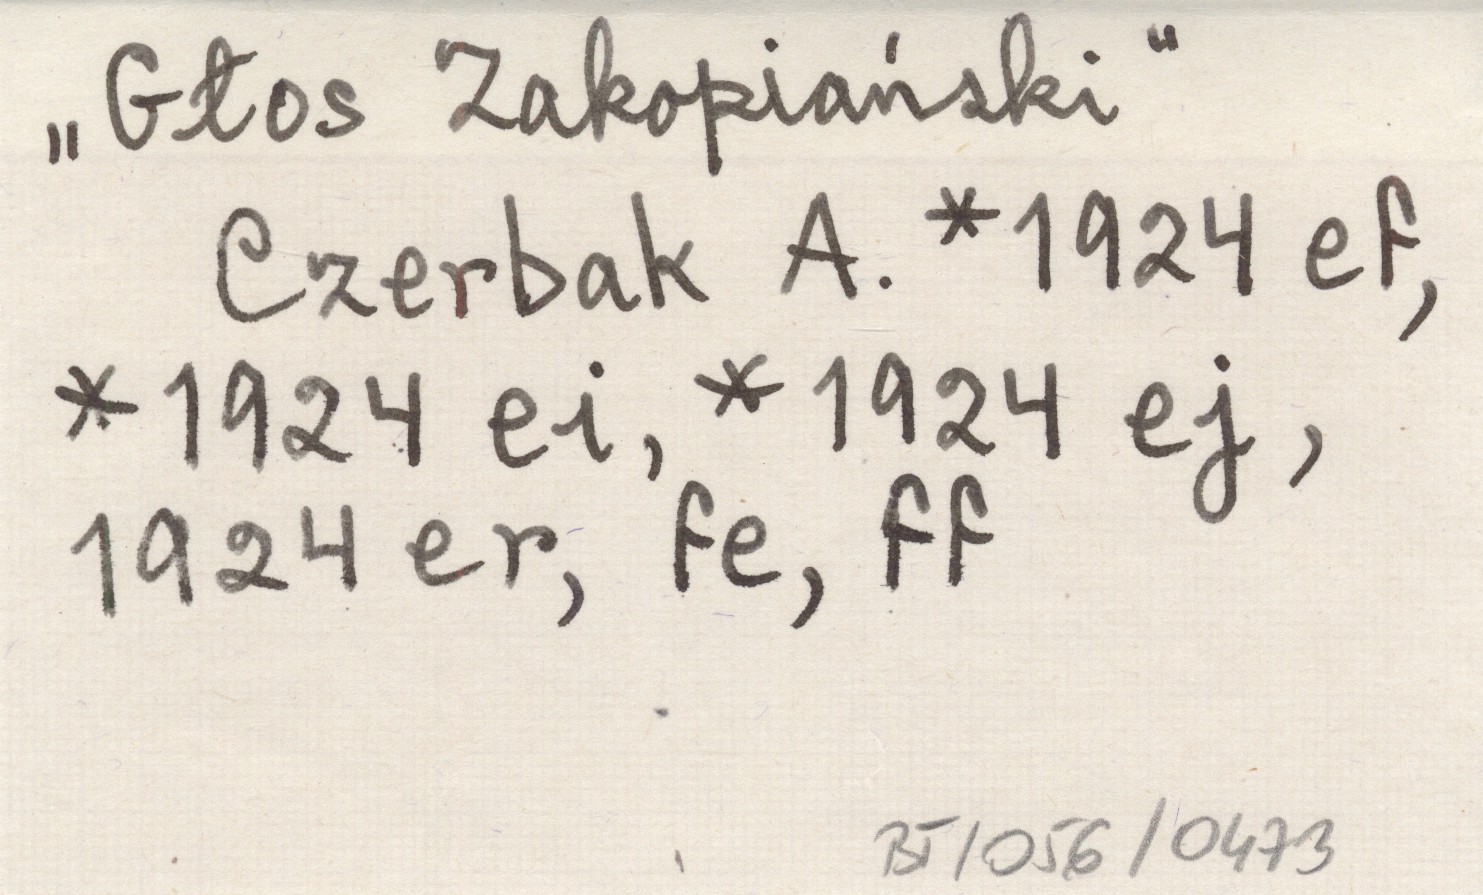 „Głos Zakopiański"
Czerbak A. *1924 ef,
*1924 ei, *1924 ej,
1924 er, fe, ff
BT/056/0473